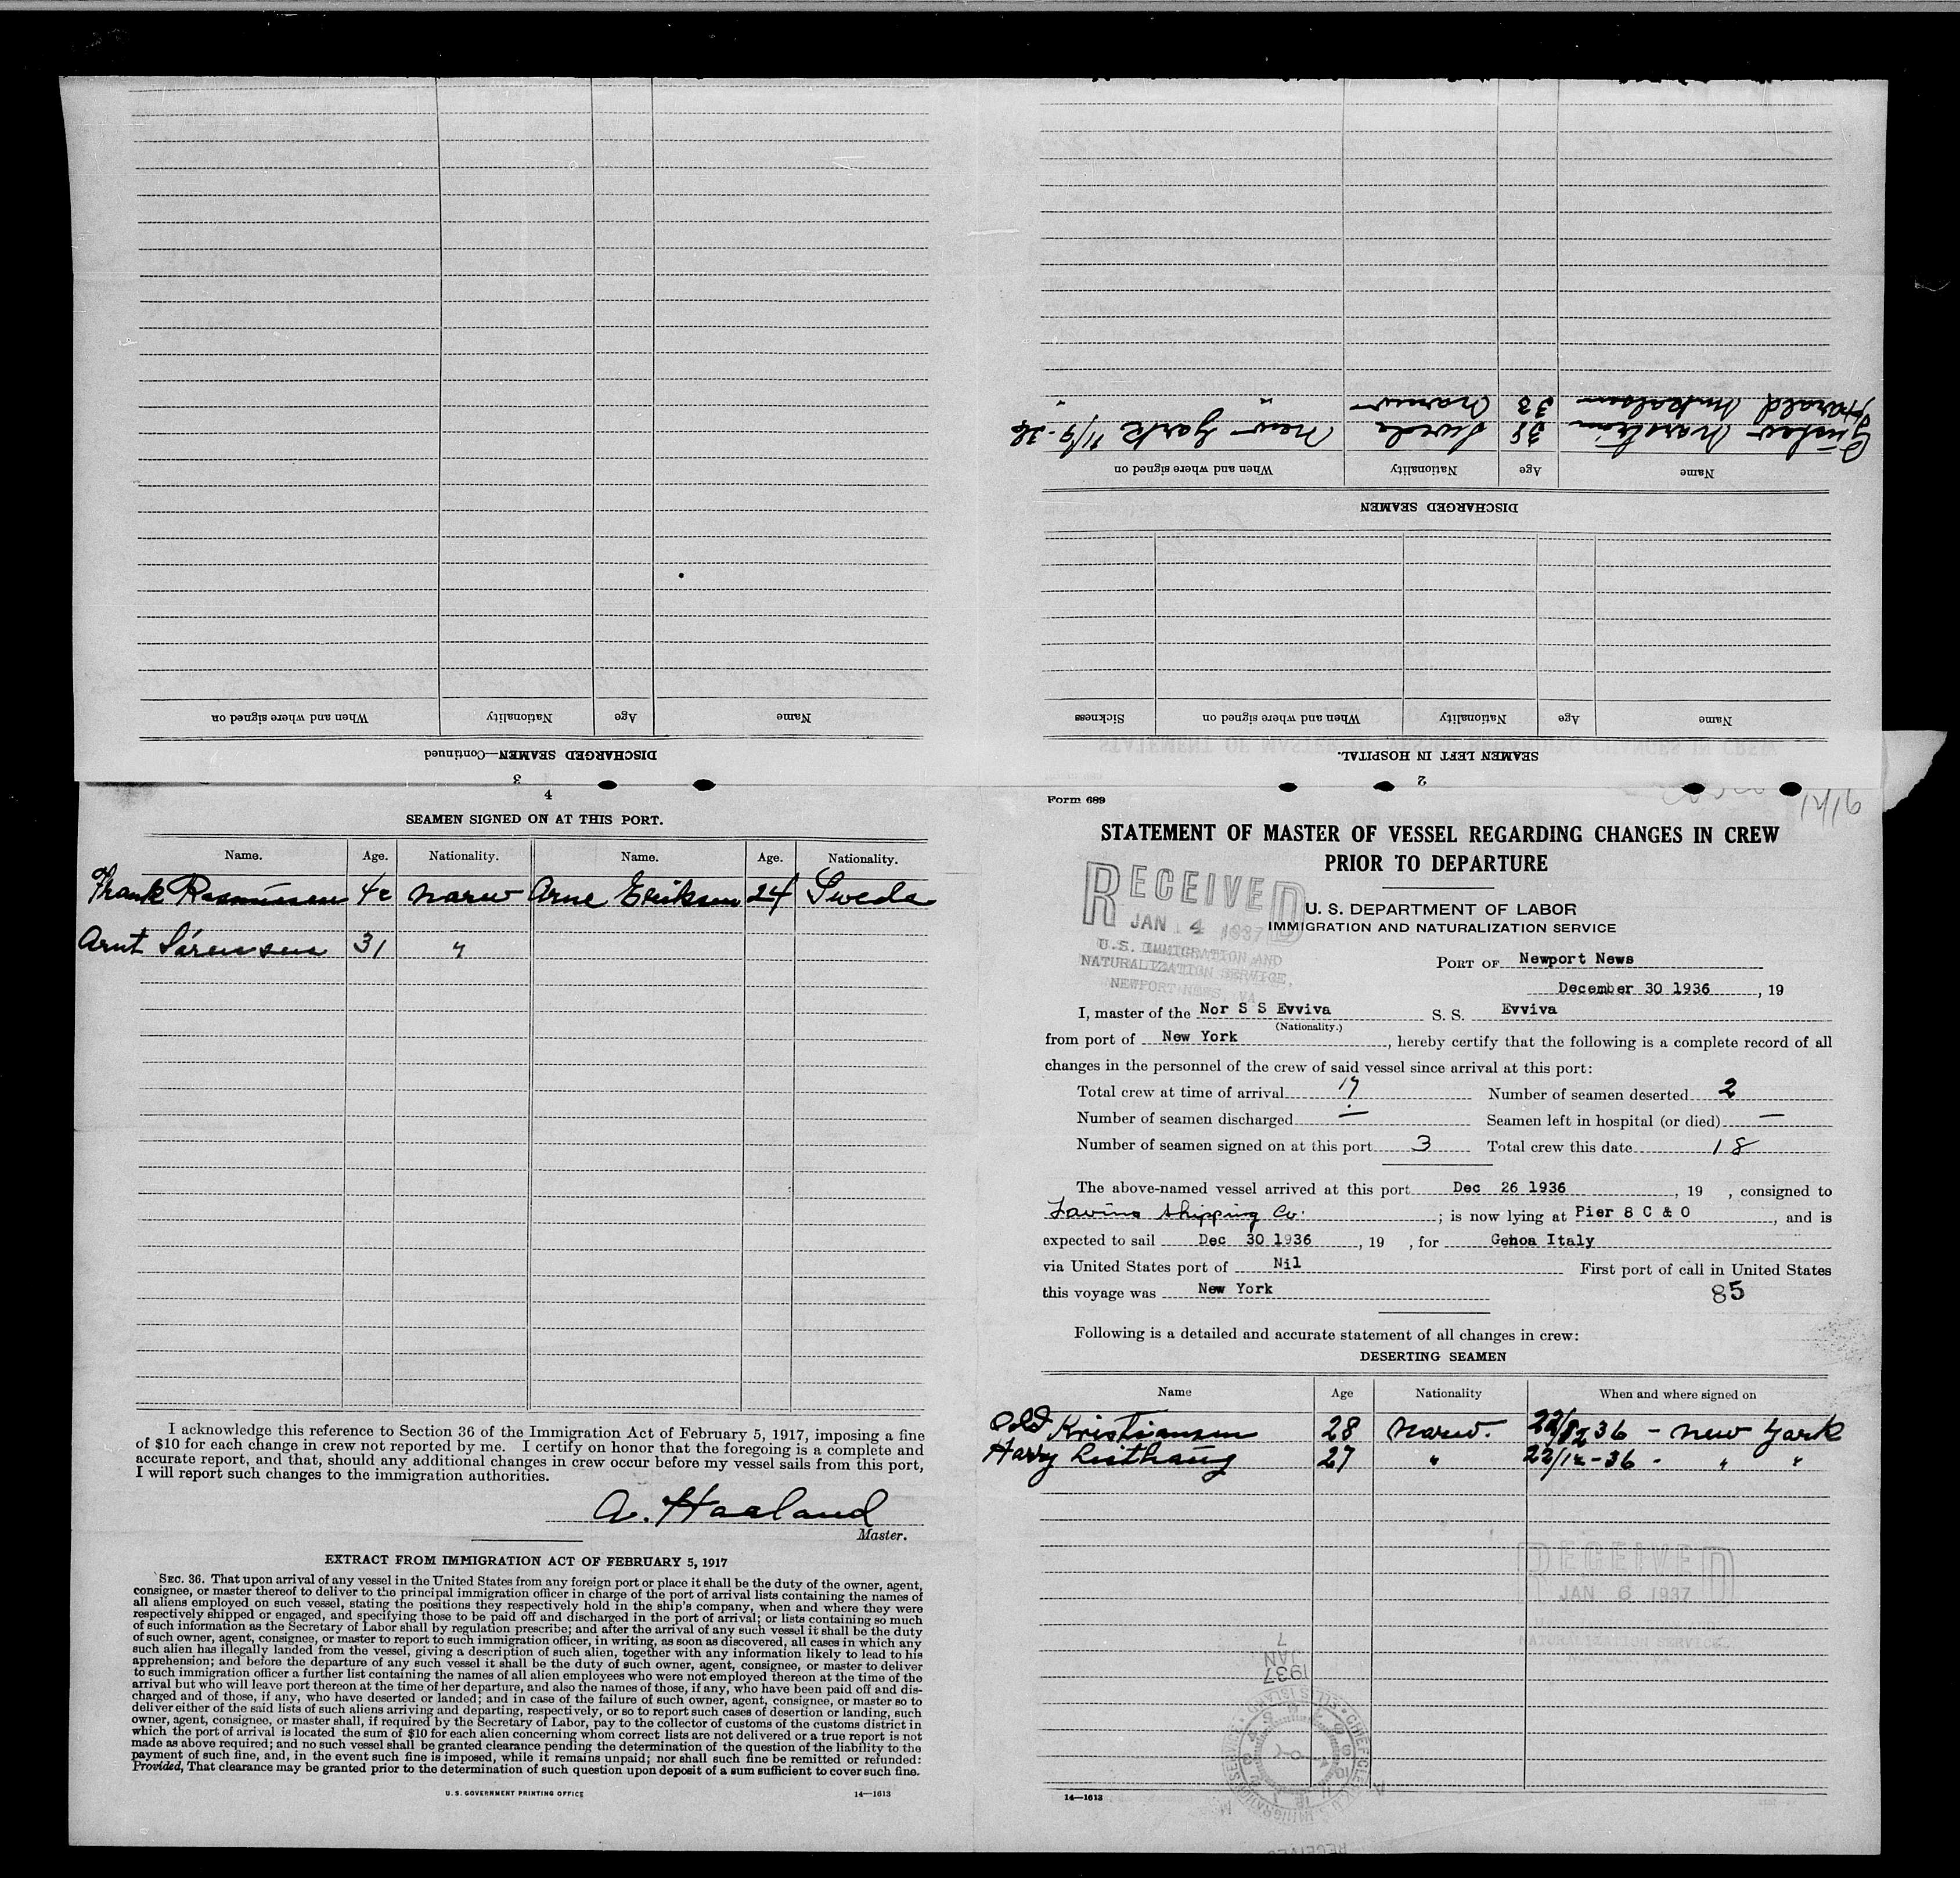 Form 689
12/16
STATEMENT OF MASTER OF VESSEL REGARDING CHANGES IN CREW
PRIOR TO DEPARTURE
RECEIVED
JAN 4 1937
U.S. IMMIGRATION AND
NATURALIZATION SERVICE,
NEWPORT NEWS, VA.
U. S. DEPARTMENT OF LABOR
IMMIGRATION AND NATURALIZATION SERVICE
PORT OF Newport News
December 30 1936, 19
I, master of the Nor S S Evviva S. S. Evviva
(Nationality.)
from port of New York, hereby certify that the following is a complete record of all
changes in the personnel of the crew of said vessel since arrival at this port:
Total crew at time of arrival 17 Number of seamen deserted 2
Number of seamen discharged — Seamen left in hospital (or died) —
Number of seamen signed on at this port 3 Total crew this date 18
The above-named vessel arrived at this port Dec 26 1936, 19 , consigned to
Lavino Shipping Co.; is now lying at Pier 8 C & O, and is
expected to sail Dec 30 1936, 19 , for Genoa Italy
via United States port of Nil First port of call in United States
this voyage was New York
85
Following is a detailed and accurate statement of all changes in crew:
DESERTING SEAMEN
Name Age Nationality When and where signed on
Kristiansen 28 Norw. 36 - New York
Harry 27 " 22/12-36 - " "
RECEIVED
JAN 6 1937
NATURALIZATION SERVICE
7
JAN
1937
14—1613
2
SEAMEN LEFT IN HOSPITAL.
Name Age Nationality When and where signed on Sickness
DISCHARGED SEAMEN
Name Age Nationality When and where signed on
Gustav 38 Swede New York 11/9-36
Harald 33 Norw " "
3
DISCHARGED SEAMEN—Continued
Name Age Nationality When and where signed on
4
SEAMEN SIGNED ON AT THIS PORT.
Name. Age. Nationality. Name. Age. Nationality.
Frank Rasmussen Norw Arne Eriksen 24 Swede
Arnt Sørensen 31 "
I acknowledge this reference to Section 36 of the Immigration Act of February 5, 1917, imposing a fine
of $10 for each change in crew not reported by me. I certify on honor that the foregoing is a complete and
accurate report, and that, should any additional changes in crew occur before my vessel sails from this port,
I will report such changes to the immigration authorities.
A. Haaland
Master.
EXTRACT FROM IMMIGRATION ACT OF FEBRUARY 5, 1917
SEC. 36. That upon arrival of any vessel in the United States from any foreign port or place it shall be the duty of the owner, agent,
consignee, or master thereof to deliver to the principal immigration officer in charge of the port of arrival lists containing the names of
all aliens employed on such vessel, stating the positions they respectively hold in the ship's company, when and where they were
respectively shipped or engaged, and specifying those to be paid off and discharged in the port of arrival; or lists containing so much
of such information as the Secretary of Labor shall by regulation prescribe; and after the arrival of any such vessel it shall be the duty
of such owner, agent, consignee, or master to report to such immigration officer, in writing, as soon as discovered, all cases in which any
such alien has illegally landed from the vessel, giving a description of such alien, together with any information likely to lead to his
apprehension; and before the departure of any such vessel it shall be the duty of such owner, agent, consignee, or master to deliver
to such immigration officer a further list containing the names of all alien employees who were not employed thereon at the time of the
arrival but who will leave port thereon at the time of her departure, and also the names of those, if any, who have been paid off and dis-
charged and of those, if any, who have deserted or landed; and in case of the failure of such owner, agent, consignee, or master so to
deliver either of the said lists of such aliens arriving and departing, respectively, or so to report such cases of desertion or landing, such
owner, agent, consignee, or master shall, if required by the Secretary of Labor, pay to the collector of customs of the customs district in
which the port of arrival is located the sum of $10 for each alien concerning whom correct lists are not delivered or a true report is not
made as above required; and no such vessel shall be granted clearance pending the determination of the question of the liability to the
payment of such fine, and, in the event such fine is imposed, while it remains unpaid; nor shall such fine be remitted or refunded:
Provided, That clearance may be granted prior to the determination of such question upon deposit of a sum sufficient to cover such fine.
U. S. GOVERNMENT PRINTING OFFICE 14—1613